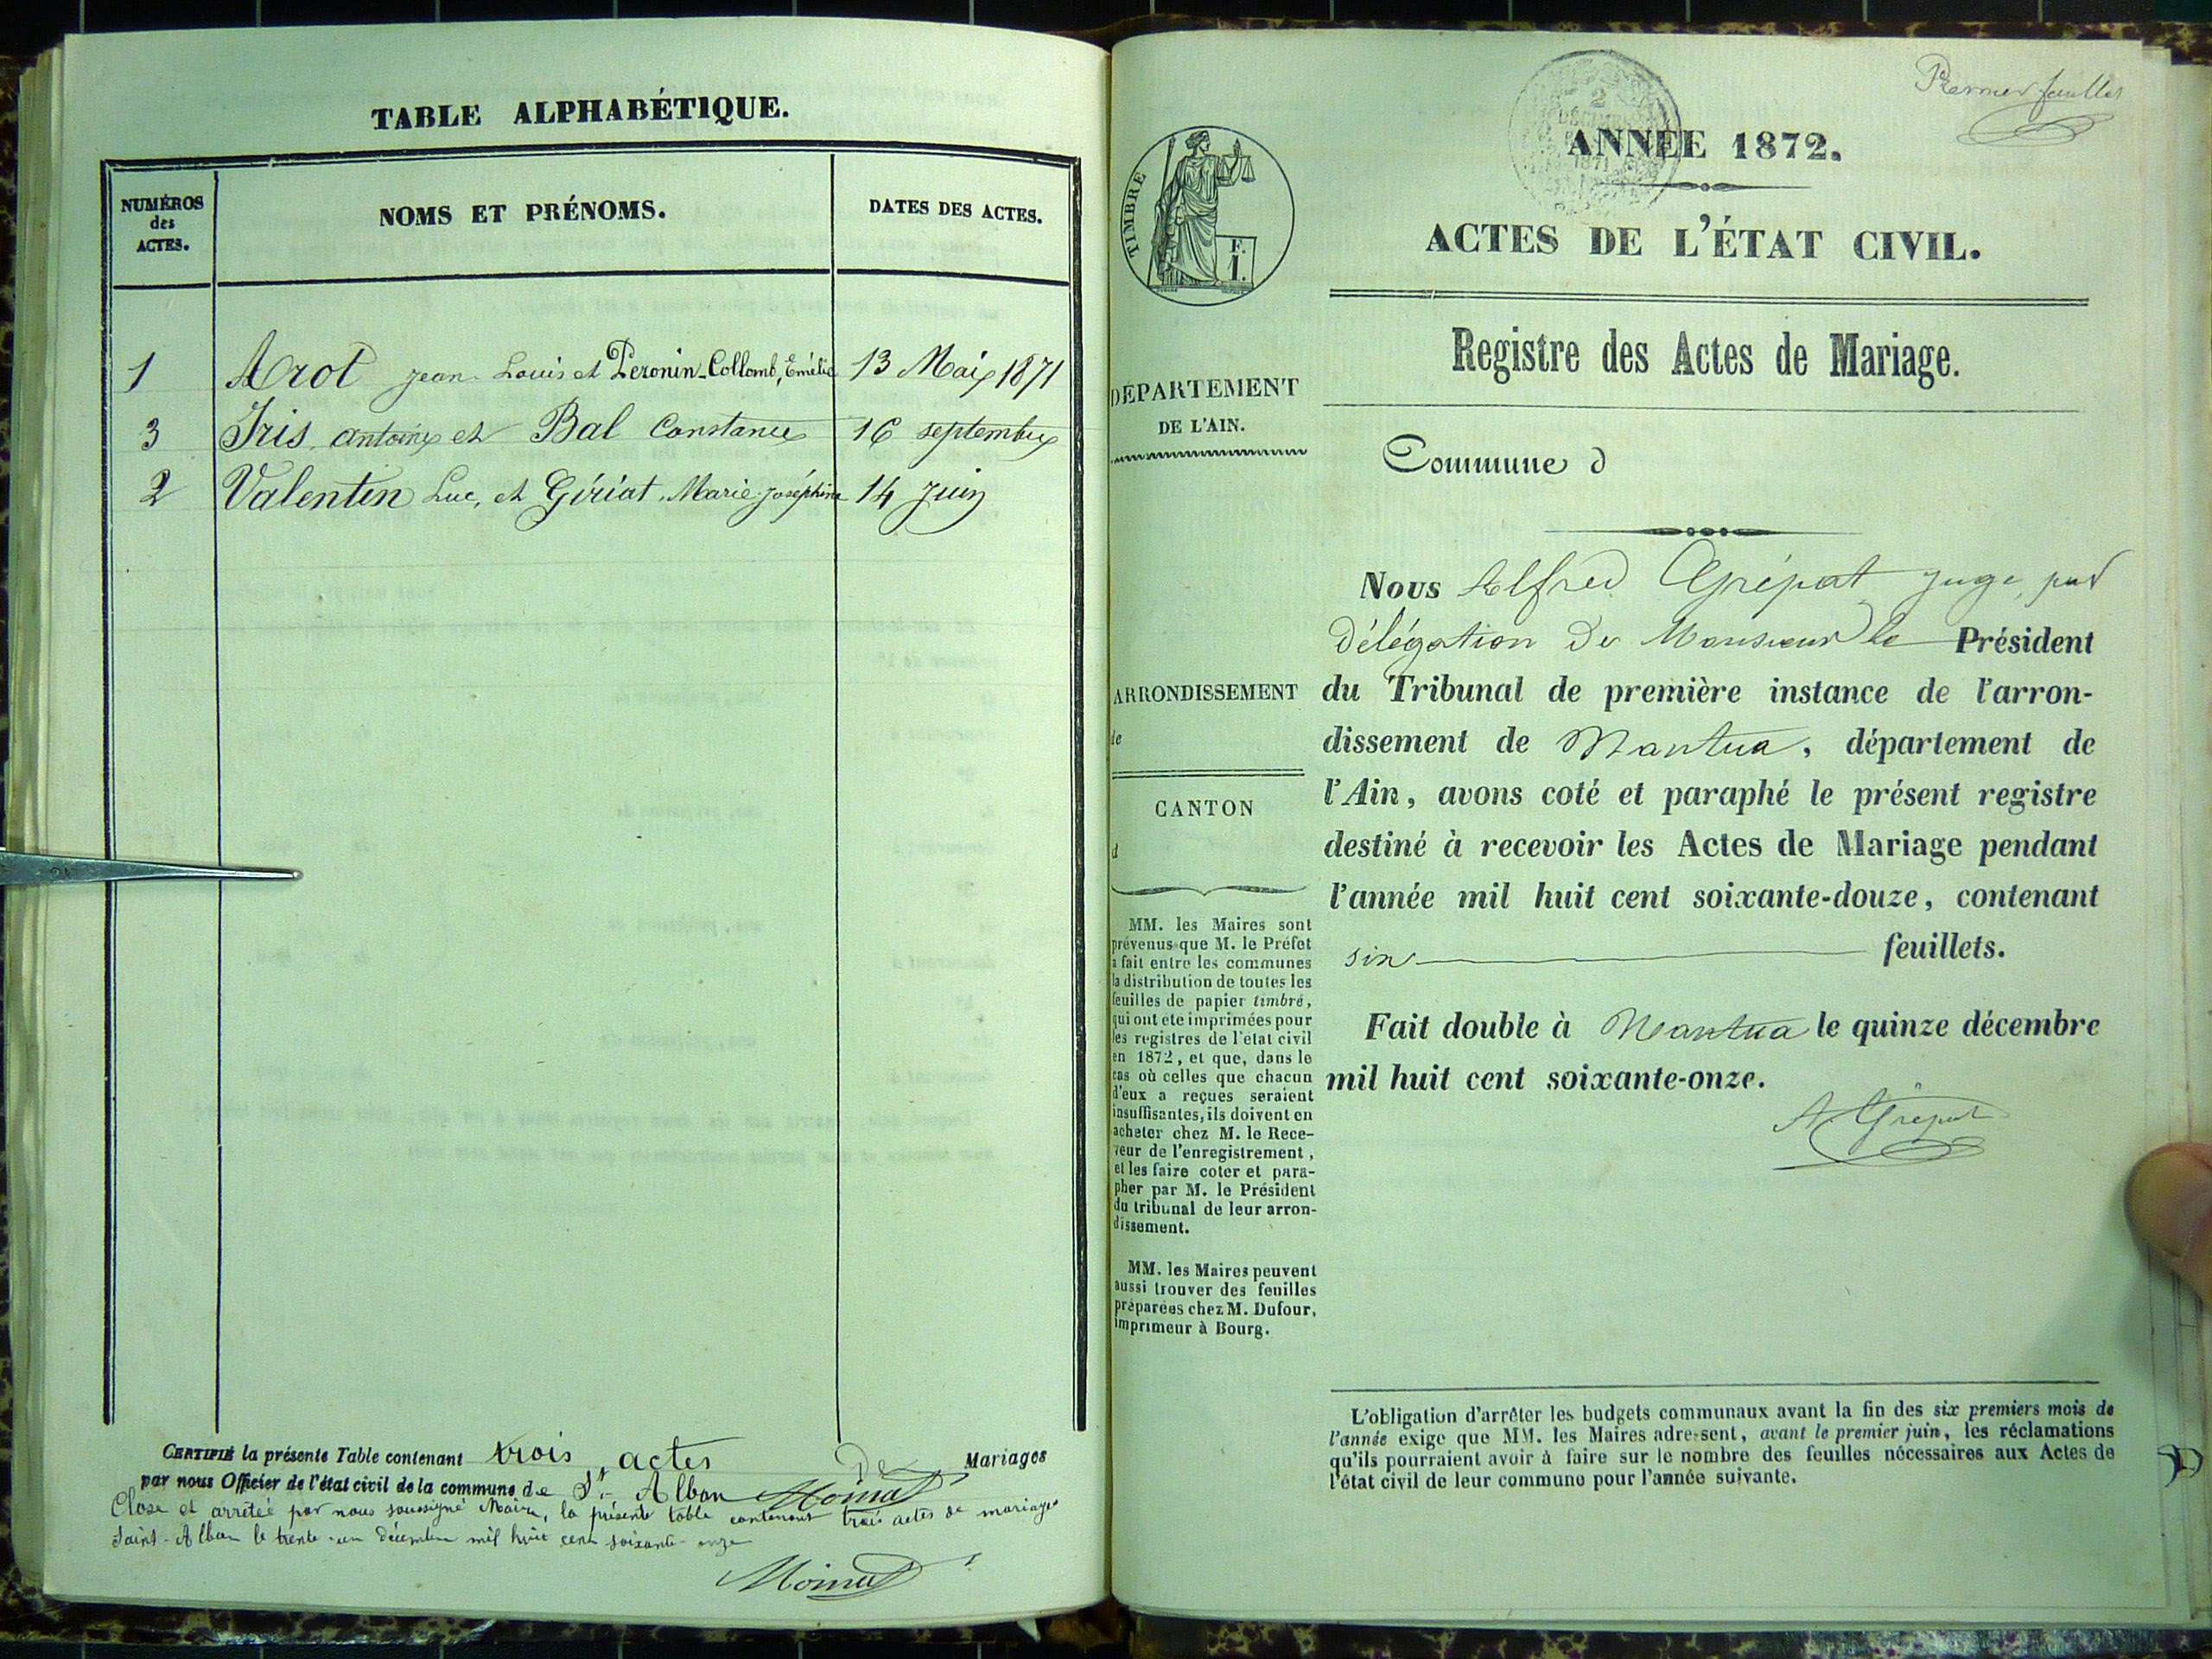 TABLE ALPHABÉTIQUE.
NUMÉROS
des
ACTES.
NOMS ET PRÉNOMS.
DATES DES ACTES.
1 Arot Jean Louis et Peronin-Collomb, Emélie 13 Mai 1871
3 Iris antoine et Bal Constance 16 septembre
2 Valentin Luc, et Gériat, Marie-joséphine 14 juin
CERTIFIÉ la présente Table contenant trois actes De Mariages
par nous Officier de l'état civil de la commune de St. Alban
Close et arrêtée par nous soussigné Maire, la présente table contenant trois actes de mariages
Saint-Alban le trente-un décembre mil huit cent soixante-onze
Premier feuillet
ANNÉE 1872.
TIMBRE
F.
1.
ACTES DE L'ÉTAT CIVIL.
Registre des Actes de Mariage.
DÉPARTEMENT
DE L'AIN.
Commune d
Nous Alfred Grépat juge, par
Délégation De Monsieur le Président
ARRONDISSEMENT
de
du Tribunal de première instance de l'arron-
dissement de Nantua, département de
l'Ain, avons coté et paraphé le présent registre
CANTON
d
destiné à recevoir les Actes de Mariage pendant
l'année mil huit cent soixante-douze, contenant
six feuillets.
Fait double à Nantua le quinze décembre
mil huit cent soixante-onze.
A Grépat
MM. les Maires sont
prévenus que M. le Préfet
a fait entre les communes
la distribution de toutes les
feuilles de papier timbré,
qui ont eté imprimées pour
les registres de l'état civil
en 1872, et que, dans le
cas où celles que chacun
d'eux a reçues seraient
insuffisantes, ils doivent en
acheter chez M. le Rece-
veur de l'enregistrement,
et les faire coter et para-
pher par M. le Président
du tribunal de leur arron-
dissement.
MM. les Maires peuvent
aussi trouver des feuilles
préparées chez M. Dufour,
imprimeur à Bourg.
L'obligation d'arrêter les budgets communaux avant la fin des six premiers mois de
l'année exige que MM. les Maires adressent, avant le premier juin, les réclamations
qu'ils pourraient avoir à faire sur le nombre des feuilles nécessaires aux Actes de
l'état civil de leur commune pour l'année suivante.